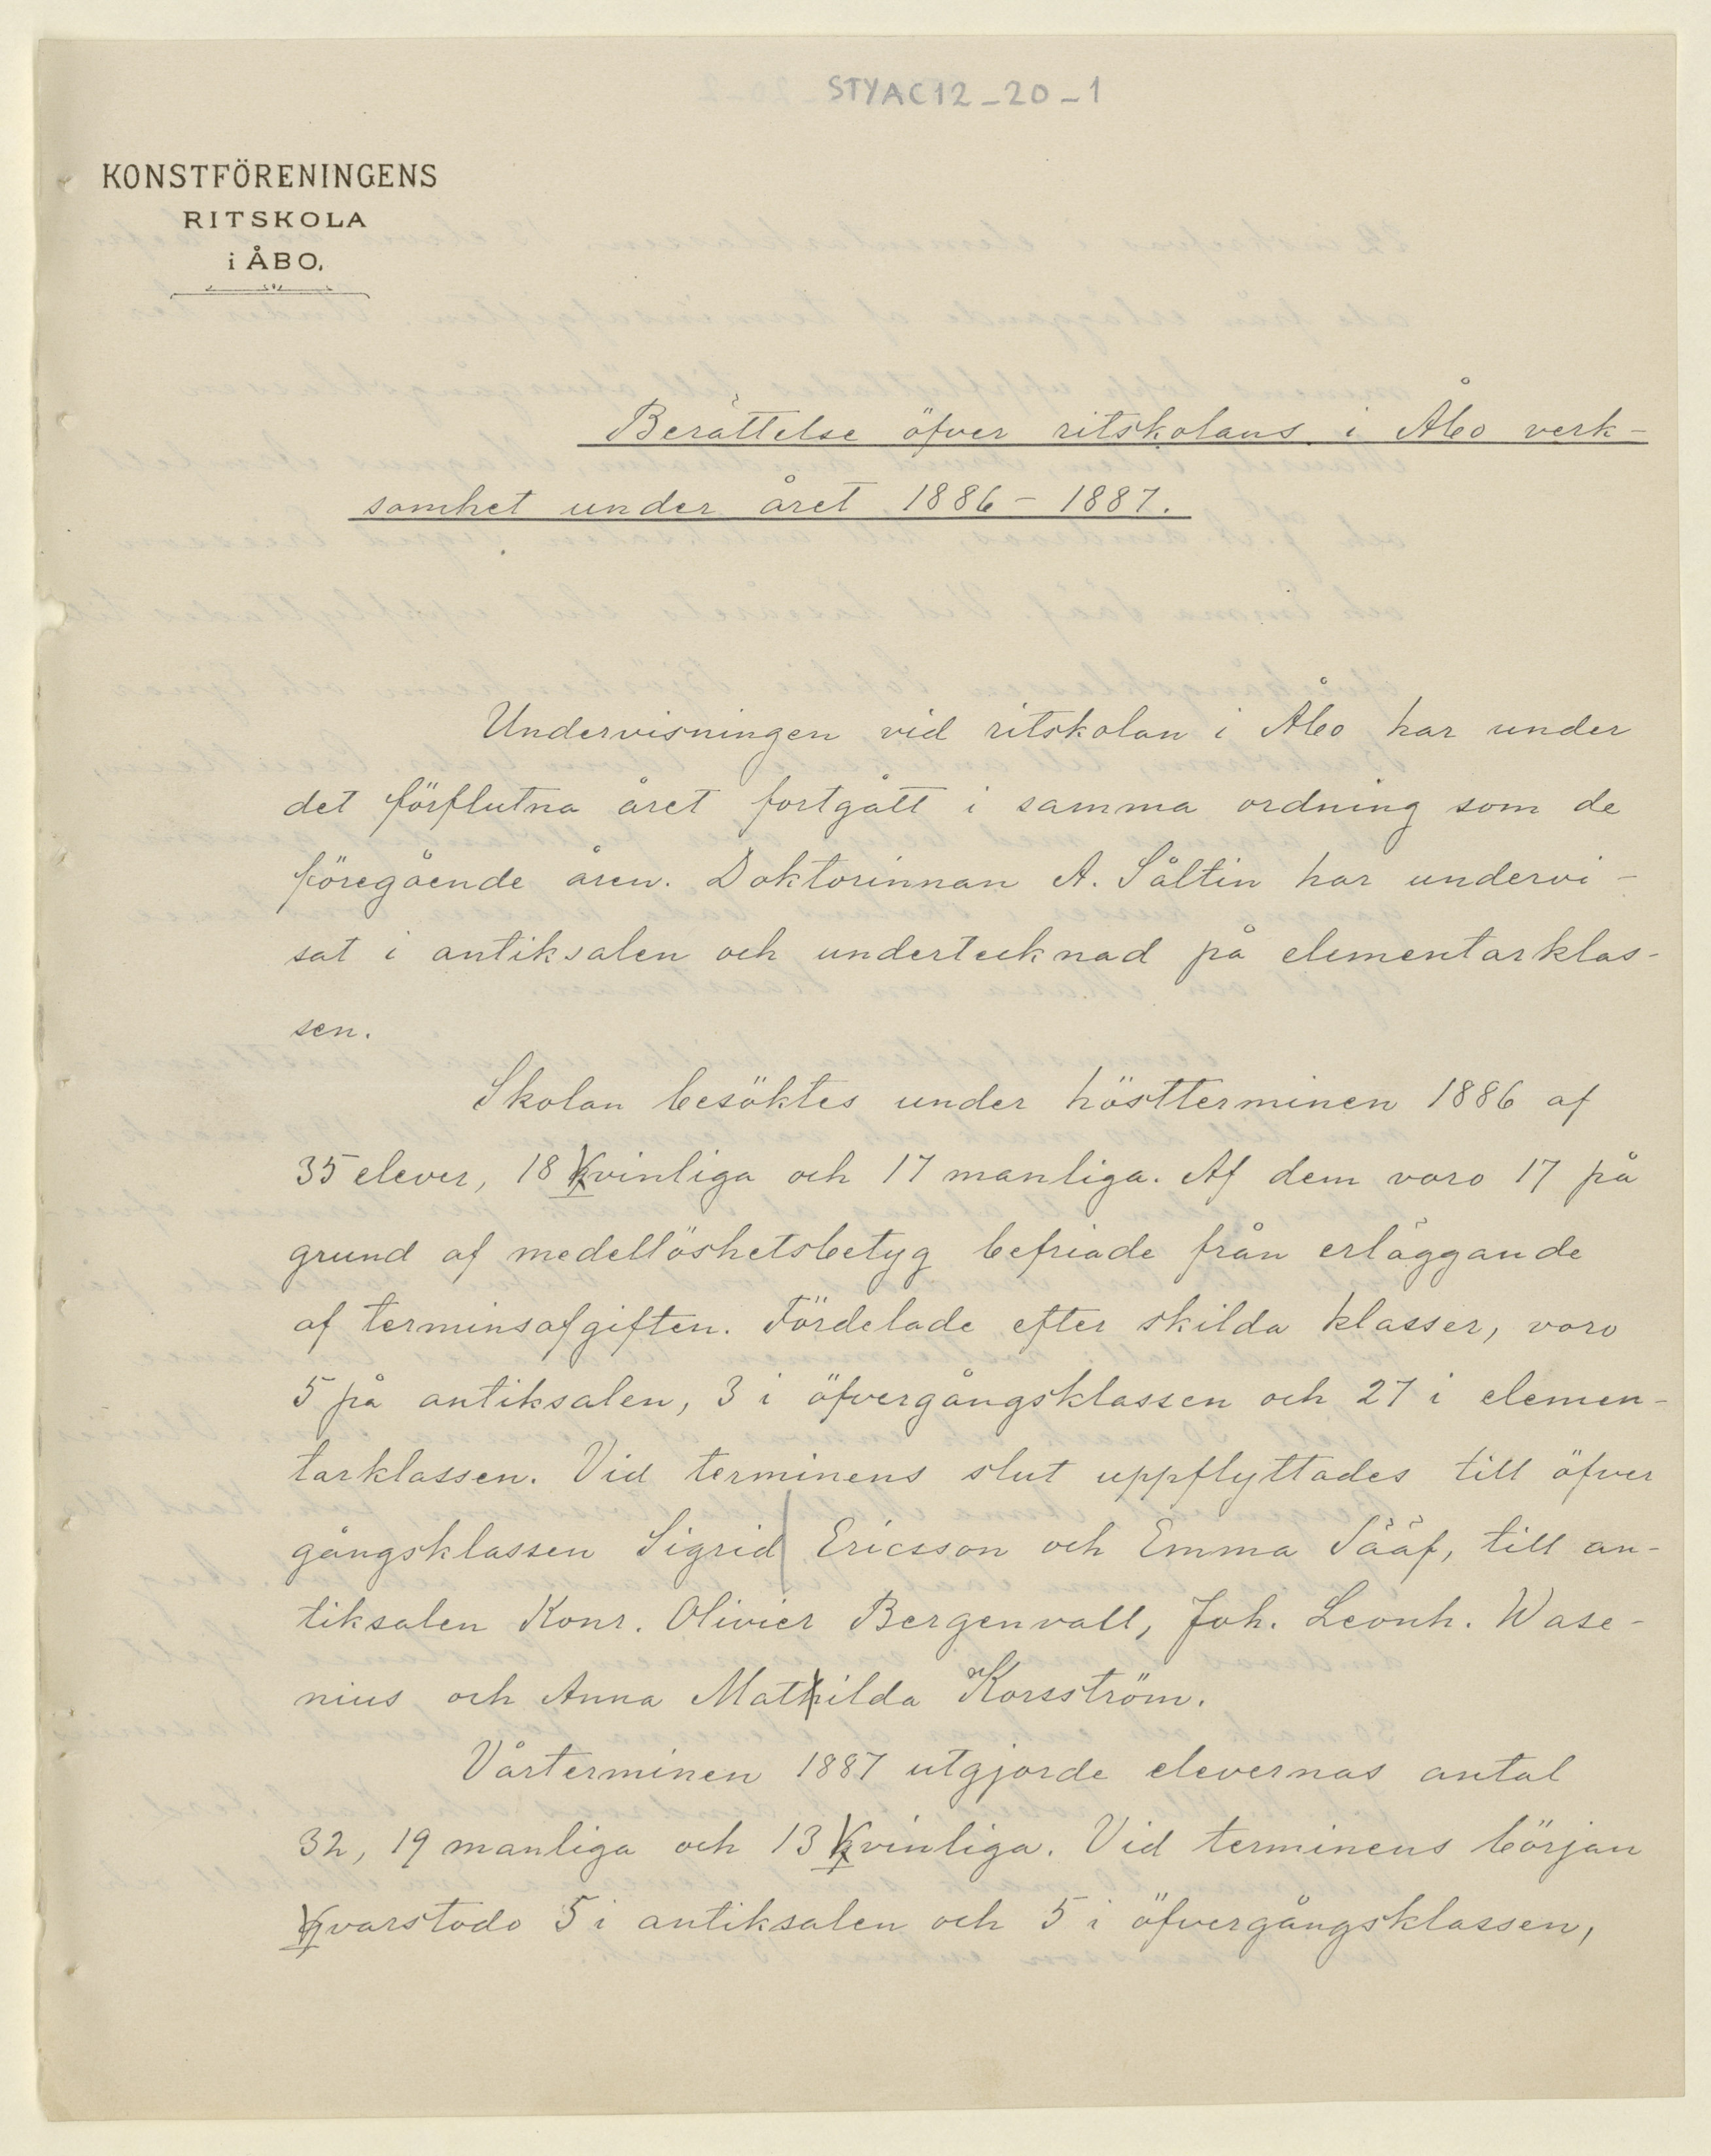 STYAC12_20_1
KONSTFÖRENINGENS
RITSKOLA
i ÅBO.
Berättelse öfver ritskolans i Åbo verk-
samhet under året 1886-1887.
Undervisningen vid ritskolan i Åbo har under
det förflutna året fortgått i samma ordning som de
föregående åren. Doktorinnan A. Såltin har undervi-
sat i antiksalen och undertecknad på elementarklas-
sen.
Skolan besöktes under höstterminen 1886 af
35 elever, 18 kvinliga och 17 manliga. Af dem voro 17 på
grund af medellöshetsbetyg befriade från erläggande
af terminsafgiften. Fördelade efter skilda klasser, voro
5 på antiksalen, 3 i öfvergångsklassen och 27 i elemen-
tarklassen. Vid terminens slut uppflyttades till öfver
gångsklassen Sigrid Ericsson och Emma Sääf, till an-
tiksalen Konr. Olivier Bergenvall, Joh. Leonh. Wase-
nius och Anna Mathilda Korsström.
Vårterminen 1887 utgjorde elevernas antal
32, 19 manliga och 13 kvinliga. Vid terminens början
qvarstodo 5 i antiksalen och 5 i öfvergångsklassen,